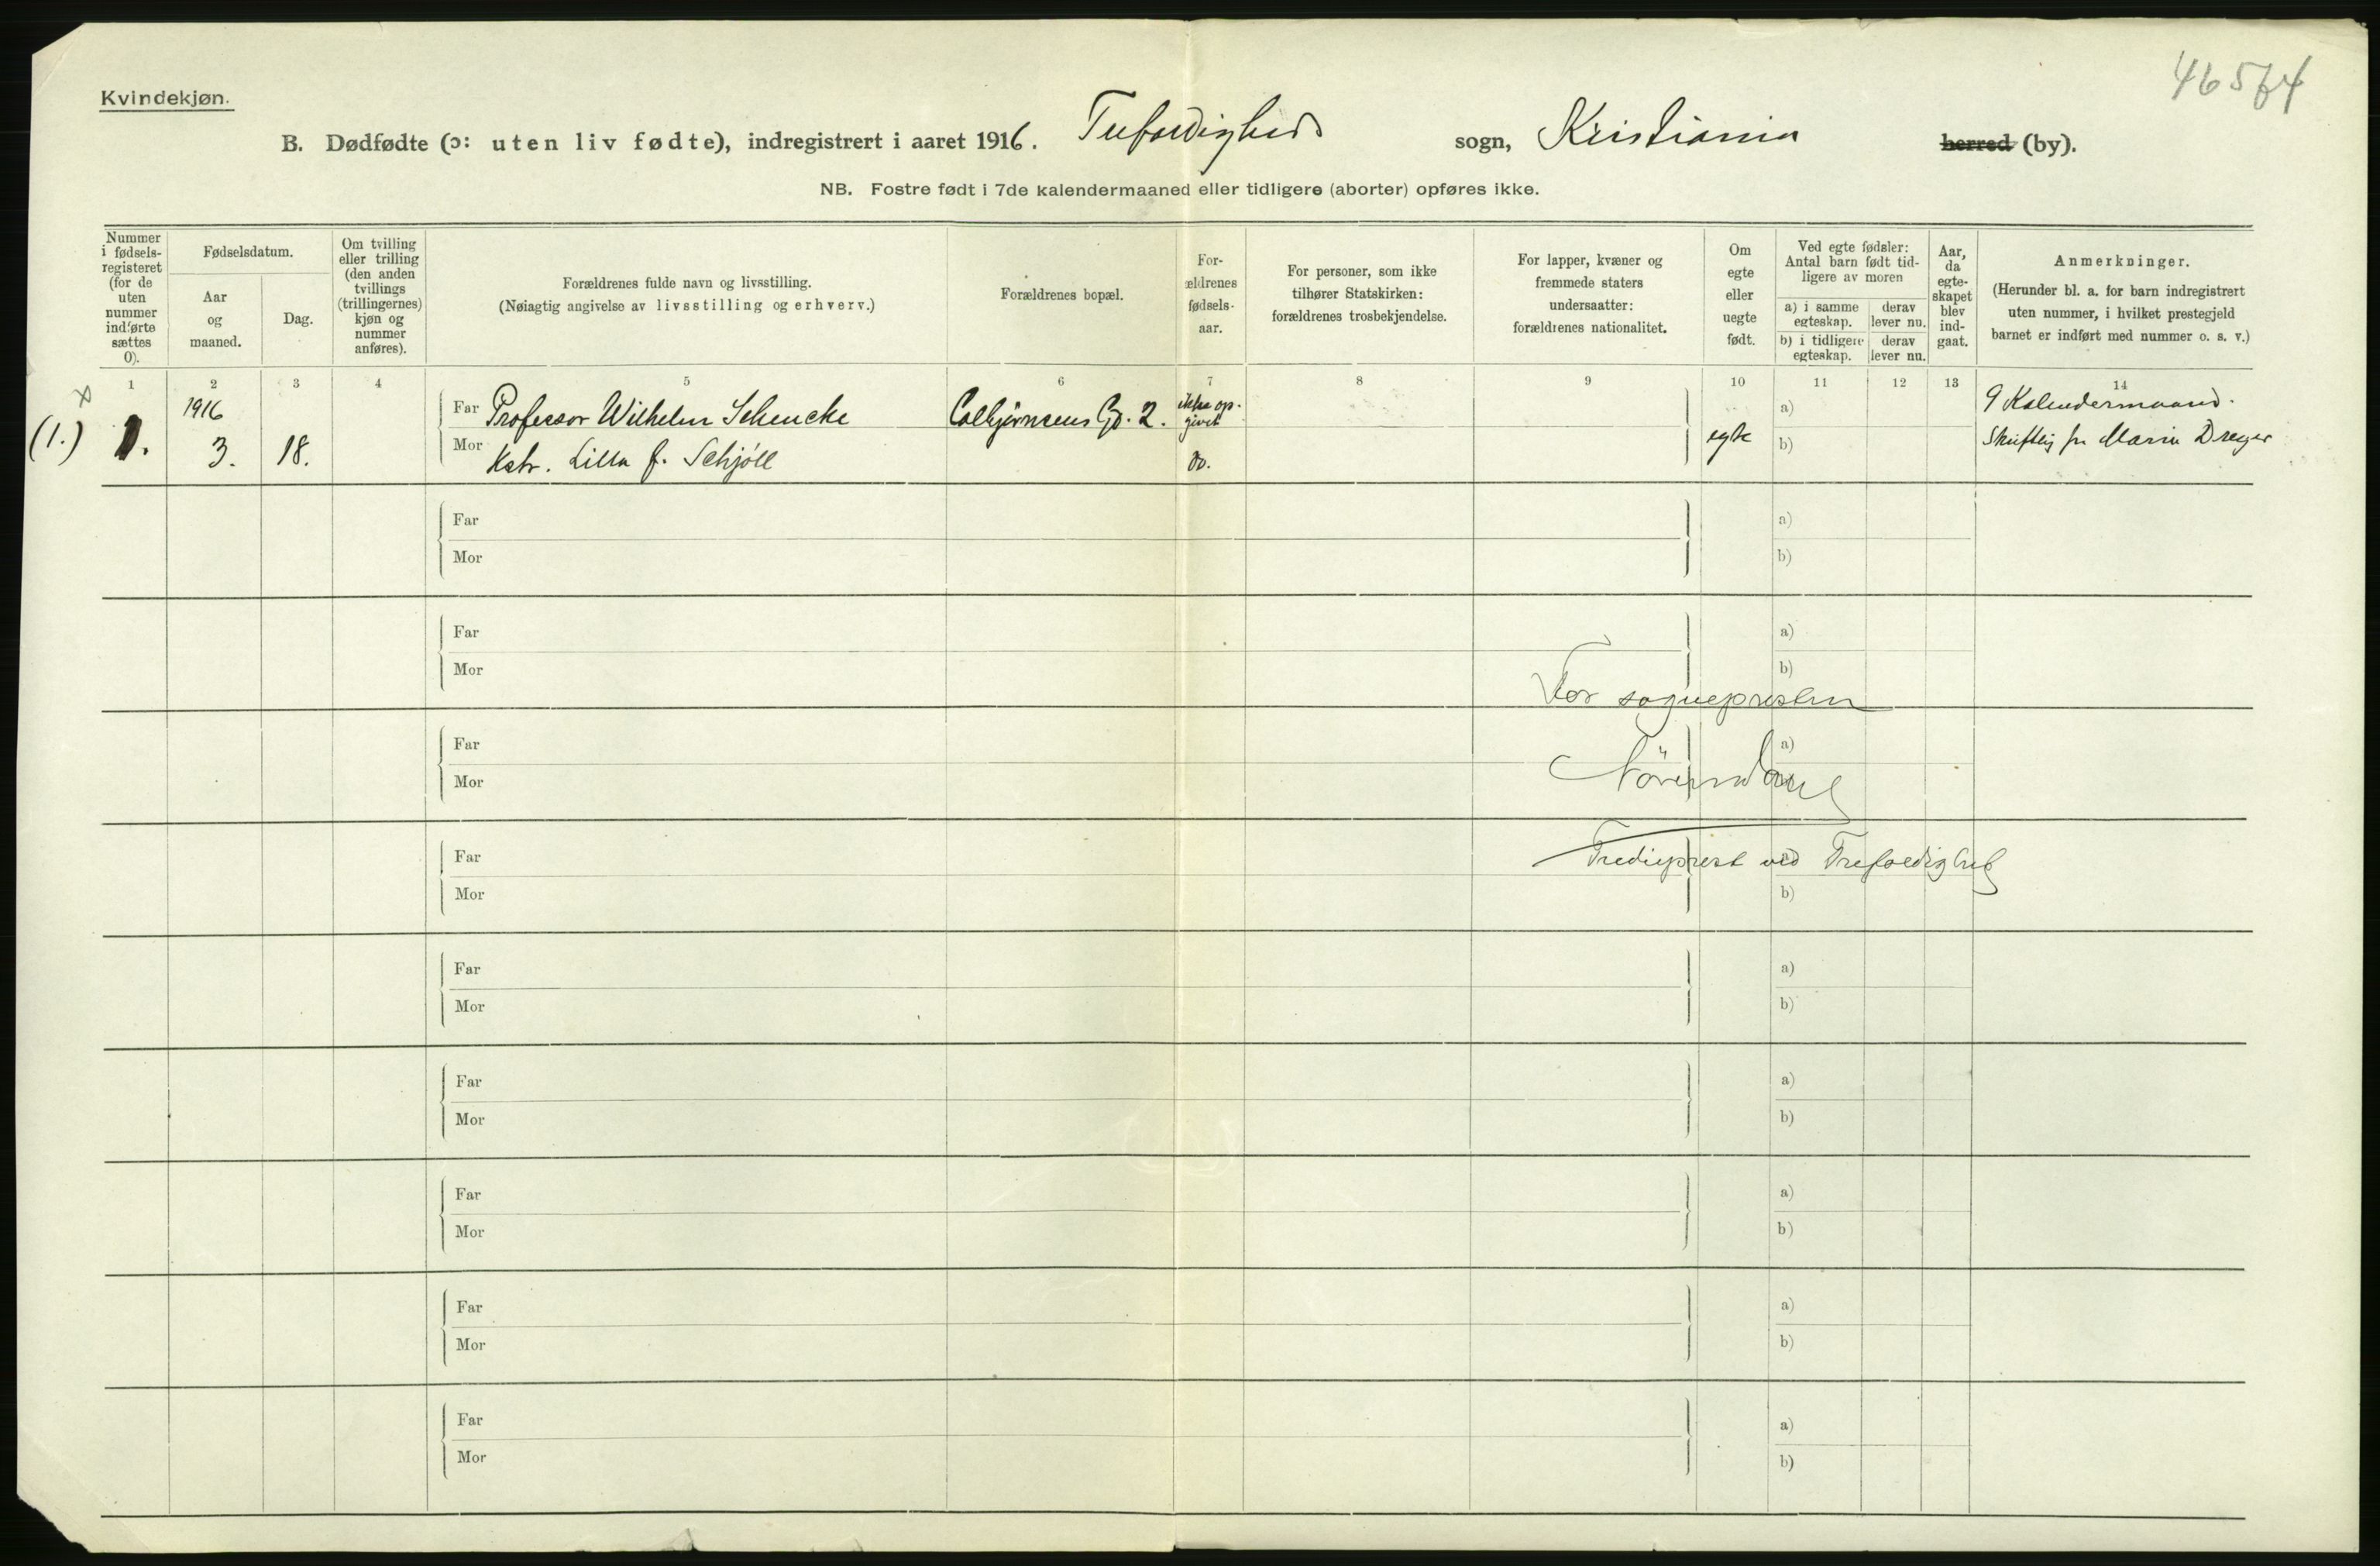 46564
Kvindekjøn.
B. Dødfødte (ɔ: uten liv fødte), indregistrert i aaret 1916. Trefoldigheds sogn, Kristiania herred (by).
NB. Fostre født i 7de kalendermaaned eller tidligere (aborter) opføres ikke.
Nummer i fødsels-registeret (for de uten nummer indførte sættes 0).
Fødselsdatum.
Aar og maaned.
Dag.
Om tvilling eller trilling (den anden tvillings (trillingernes) kjøn og nummer anføres).
Forældrenes fulde navn og livsstilling.
(Nøiagtig angivelse av livsstilling og erhverv.)
Forældrenes bopæl.
For-ældrenes fødsels-aar.
For personer, som ikke tilhører Statskirken: forældrenes trosbekjendelse.
For lapper, kvæner og fremmede staters undersaatter: forældrenes nationalitet.
Om egte eller uegte født.
Ved egte fødsler: Antal barn født tid-ligere av moren
a) i samme egteskap.
derav lever nu.
b) i tidligere egteskap.
derav lever nu.
Aar, da egte-skapet blev ind-gaat.
Anmerkninger.
(Herunder bl. a. for barn indregistrert uten nummer, i hvilket prestegjeld barnet er indført med nummer o. s. v.)
1 2 3 4 5 6 7 8 9 10 11 12 13 14
x
(1.) 1. 1916 3. 18.
Far Professor Wilhelm Schencke Colbjørnsens Gd. 2. ikke op-givet a) 9 Kalendermaaned.
Mor Kstr. Lilla f. Schjöll do. egte b) Skriftlig fr Marie Dreyer
Far a)
Mor b)
Far a)
Mor b)
For sognepresten
Far a)
Mor b)
Far
Trediеprest ved Trefoldighed
Mor b)
Far a)
Mor b)
Far a)
Mor b)
Far a)
Mor b)
Far a)
Mor b)
Far a)
Mor b)